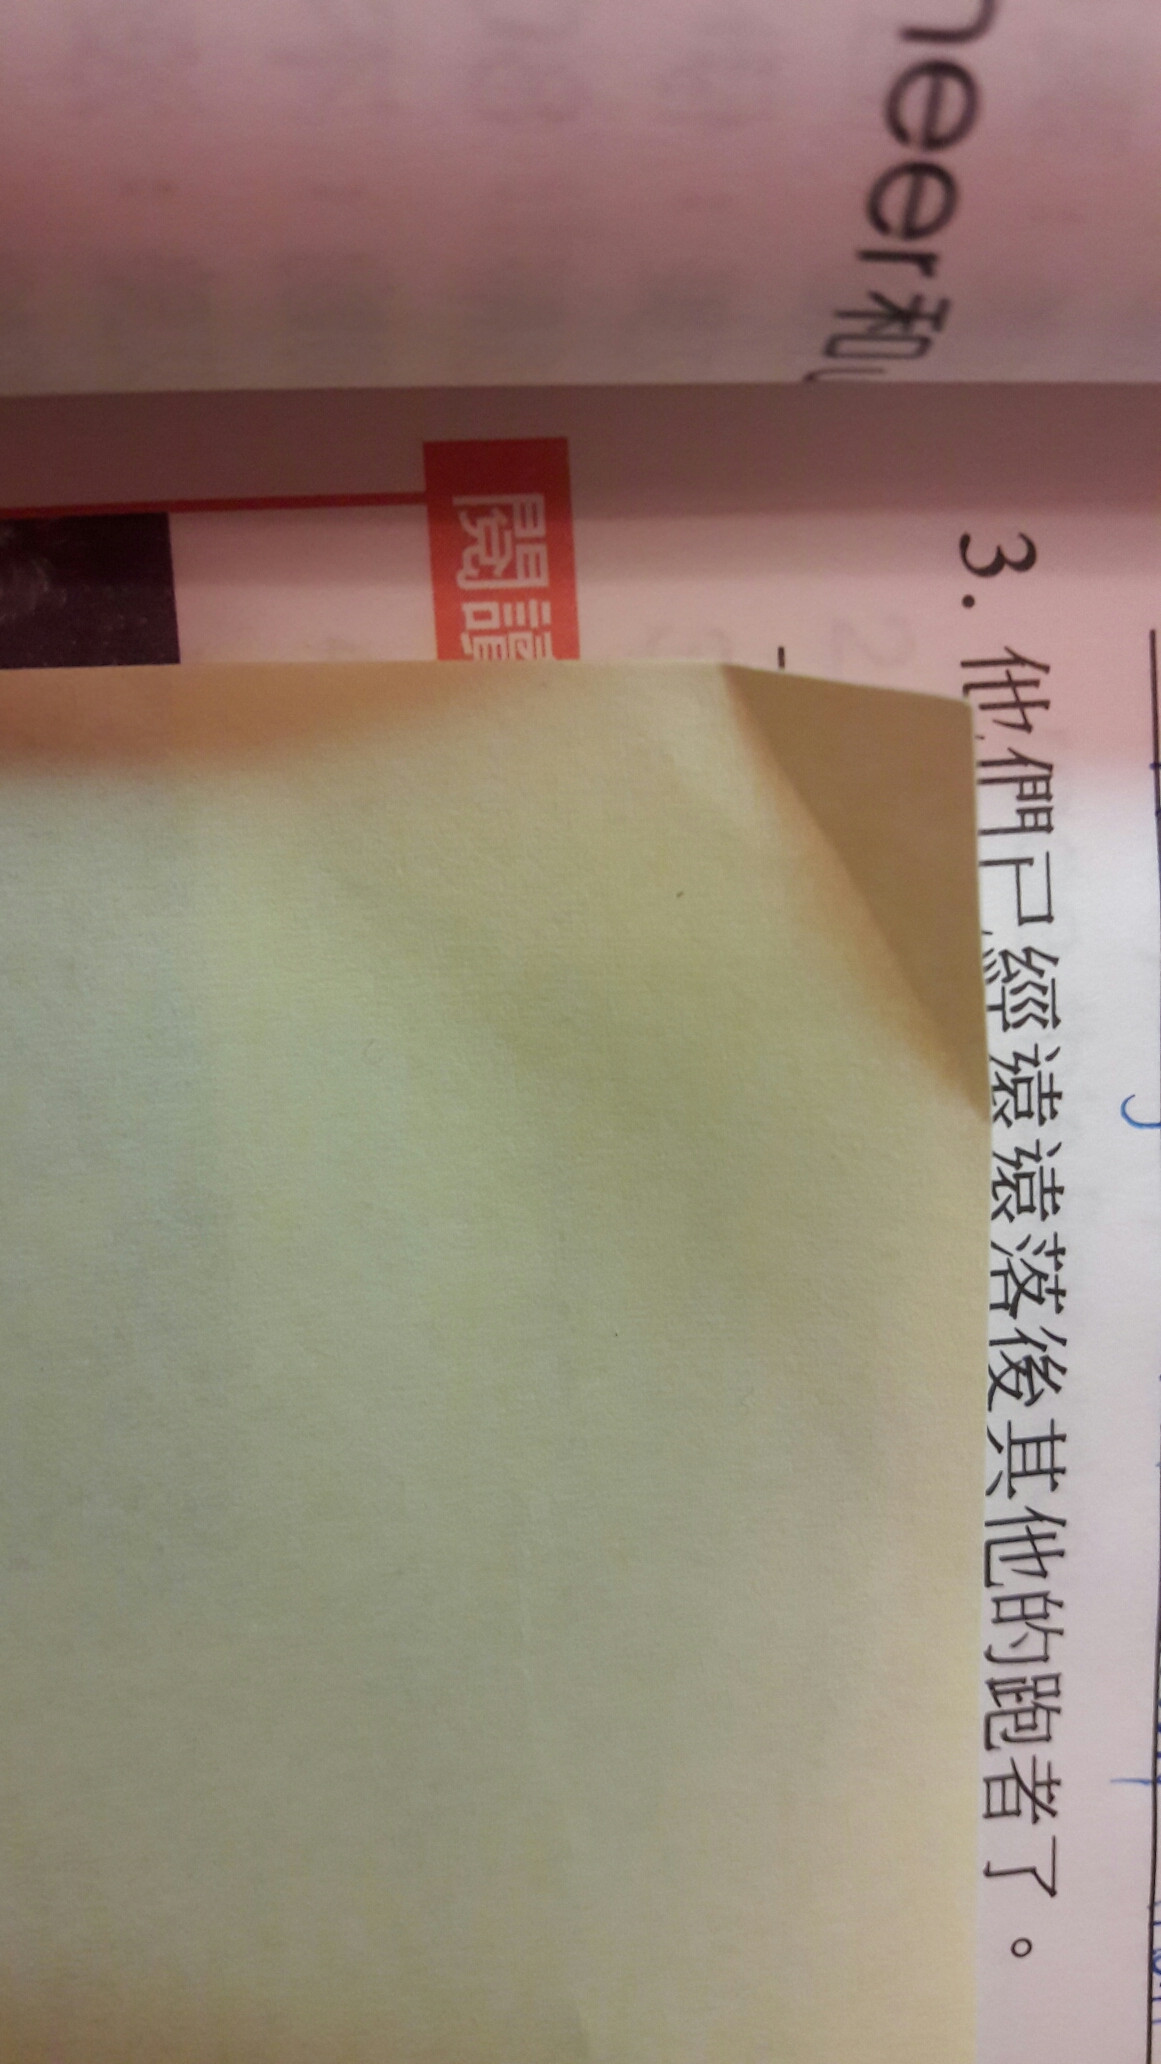 neer和
3. 他們已經遠遠落後其他的跑者了。
閱讀